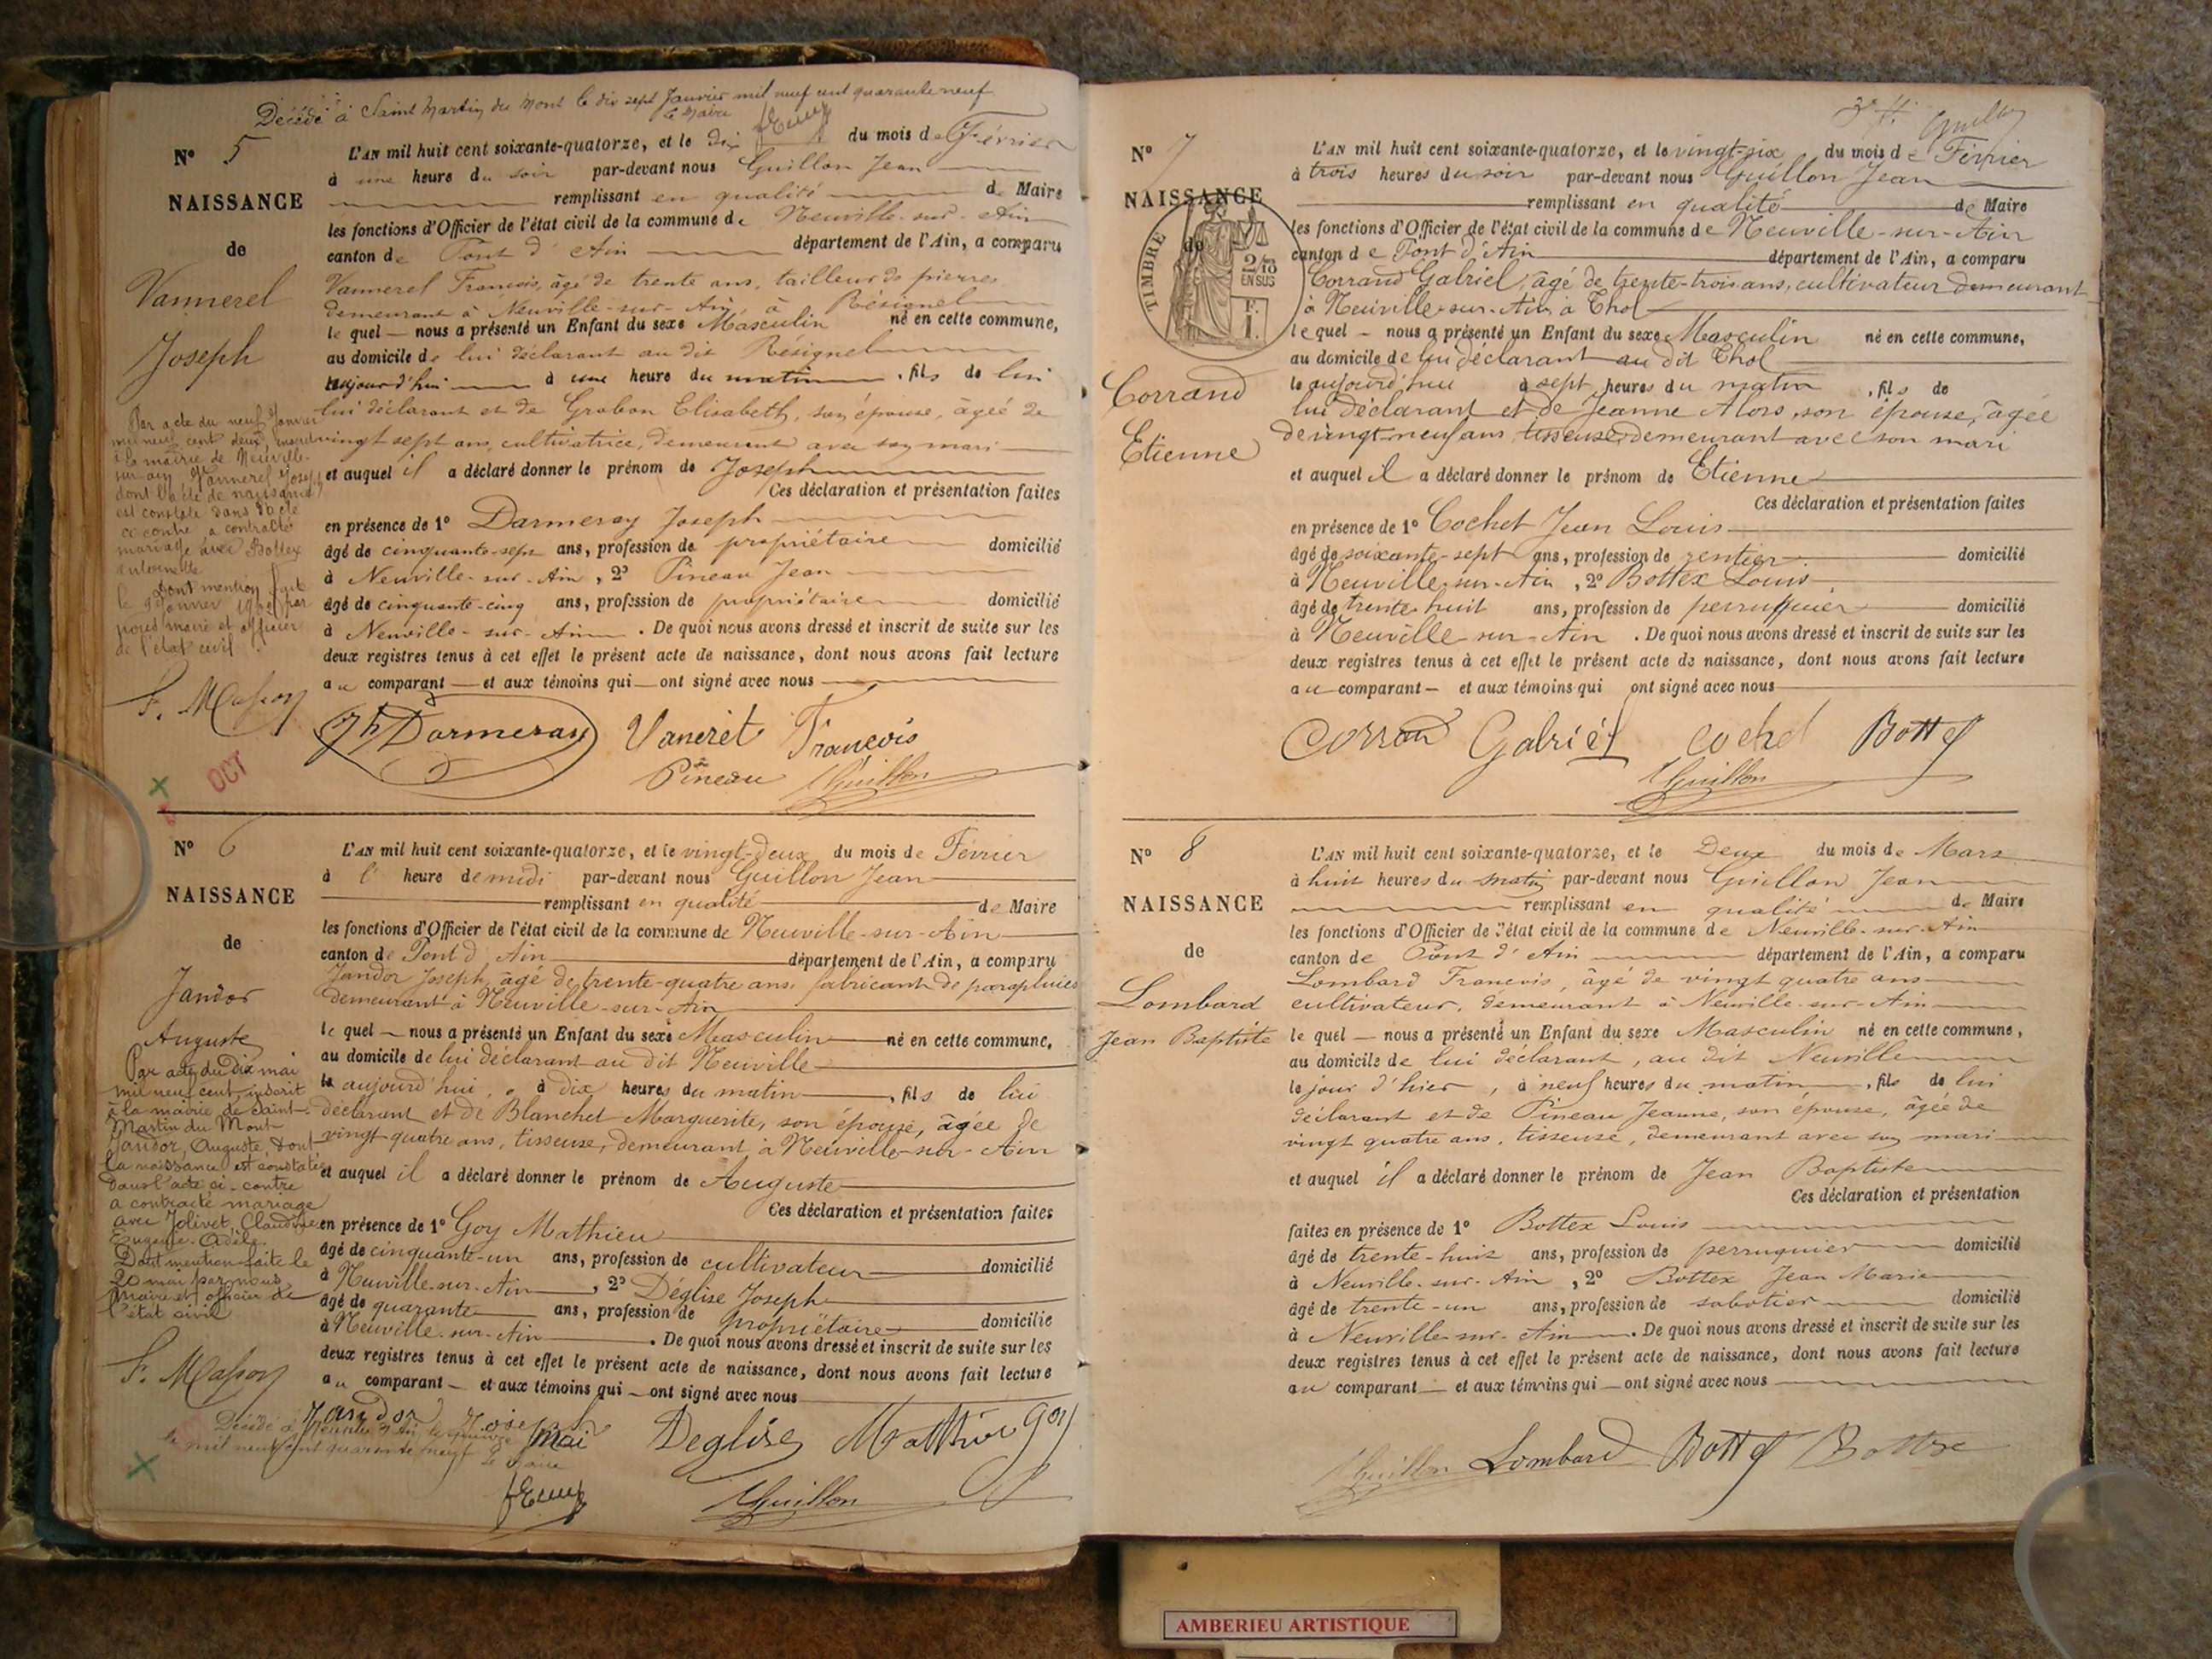 Décédé à Saint Martin du Mont le dix sept Janvier mil neuf cent quarante neuf
le Maire
N° 5
NAISSANCE
de
Vannerel
Joseph
L'AN mil huit cent soixante-quatorze, et le dix du mois de Février
à une heure du soir par-devant nous Guillon Jean
remplissant en qualité de Maire
les fonctions d'Officier de l'état civil de la commune de Neuville-sur-Ain
canton de Pont d'Ain département de l'Ain, a comparu
Vannerel François, âgé de trente ans, tailleur de pierres
demeurant à Neuville-sur-Ain, à Résignel
le quel nous a présenté un Enfant du sexe Masculin né en cette commune,
au domicile de lui déclarant au dit Résignel
aujourd'hui à une heure du matin, fils de lui
lui déclarant et de Grabon Elisabeth, son épouse, âgée de
vingt sept ans, cultivatrice, demeurant avec son mari
et auquel il a déclaré donner le prénom de Joseph
Ces déclaration et présentation faites
en présence de 1° Darmeray Joseph
âgé de cinquante-sept ans, profession de propriétaire domicilié
à Neuville-sur-Ain, 2° Pineau Jean
âgé de cinquante-cinq ans, profession de propriétaire domicilié
à Neuville-sur-Ain. De quoi nous avons dressé et inscrit de suite sur les
deux registres tenus à cet effet le présent acte de naissance, dont nous avons fait lecture
au comparant et aux témoins qui ont signé avec nous
Par acte du neuf Janvier
mil neuf cent deux, inscrit
à la mairie de Neuville-
sur-Ain Vannerel Joseph
dont l'acte de naissance
est constaté dans l'acte
ci contre a contracté
mariage avec Bottex
Antoinette
Dont mention faite
le 9 Janvier 1902 par
nous maire et officier
de l'état civil.
F. Masson
Jh Darmeray Vaneret François
Pineau JGuillon
OCT
N° 6
NAISSANCE
de
Jandor
Auguste
L'AN mil huit cent soixante-quatorze, et le vingt-deux du mois de Février
à l' heure de midi par-devant nous Guillon Jean
remplissant en qualité de Maire
les fonctions d'Officier de l'état civil de la commune de Neuville-sur-Ain
canton de Pont d'Ain département de l'Ain, a comparu
Jandor Joseph, âgé de trente-quatre ans, fabricant de parapluies
demeurant à Neuville-sur-Ain
le quel nous a présenté un Enfant du sexe Masculin né en cette commune,
au domicile de lui déclarant au dit Neuville
le aujourd'hui, à dix heures du matin, fils de lui
déclarant et de Blanchet Marguerite, son épouse, âgée de
vingt quatre ans, tisseuse, demeurant à Neuville-sur-Ain
et auquel il a déclaré donner le prénom de Auguste
Ces déclaration et présentation faites
en présence de 1° Goy Mathieu
âgé de cinquante-un ans, profession de cultivateur domicilié
à Neuville-sur-Ain, 2° Déglise Joseph
âgé de quarante ans, profession de propriétaire domicilié
à Neuville-sur-Ain. De quoi nous avons dressé et inscrit de suite sur les
deux registres tenus à cet effet le présent acte de naissance, dont nous avons fait lecture
au comparant et aux témoins qui ont signé avec nous
Par acte du dix mai
mil neuf cent, inscrit
à la mairie de Saint-
Martin du Mont
Jandor, Auguste, dont
la naissance est constatée
dans l'acte ci-contre
a contracté mariage
avec Jolivet, Claudine
Eugénie Adèle.
Dont mention faite le
20 mai par nous,
maire et officier de
l'état civil
F. Masson
Jandor Joseph Deglise Mathieu goy
Décédé à Neuville s/ Ain le quinze mai
mil neuf cent quarante neuf le Maire
JGuillon
N° 7
NAISSANCE
de
TIMBRE
2/10
EN SUS
F.
1.
Corrand
Etienne
L'AN mil huit cent soixante-quatorze, et le vingt-six du mois de Février
à trois heures du soir par-devant nous Guillon Jean
remplissant en qualité de Maire
les fonctions d'Officier de l'état civil de la commune de Neuville-sur-Ain
canton de Pont d'Ain département de l'Ain, a comparu
Corrand Gabriel, âgé de trente-trois ans, cultivateur demeurant
à Neuville-sur-Ain à Thol
le quel nous a présenté un Enfant du sexe Masculin né en cette commune,
au domicile de lui déclarant au dit Thol
le aujourd'hui à sept heures du matin, fils de
lui déclarant et de Jeanne Alors, son épouse, âgée
de vingt-neuf ans, tisseuse, demeurant avec son mari
et auquel il a déclaré donner le prénom de Etienne
Ces déclaration et présentation faites
en présence de 1° Cochet Jean Louis
âgé de soixante-sept ans, profession de rentier domicilié
à Neuville-sur-Ain, 2° Bottex Louis
âgé de trente-huit ans, profession de perruquier domicilié
à Neuville-sur-Ain. De quoi nous avons dressé et inscrit de suite sur les
deux registres tenus à cet effet le présent acte de naissance, dont nous avons fait lecture
au comparant et aux témoins qui ont signé avec nous
Corran Gabriel Cochet Bottex
JGuillon
N° 8
NAISSANCE
de
Lombard
Jean Baptiste
L'AN mil huit cent soixante-quatorze, et le Deux du mois de Mars
à huit heures du matin par-devant nous Guillon Jean
remplissant en qualité de Maire
les fonctions d'Officier de l'état civil de la commune de Neuville-sur-Ain
canton de Pont d'Ain département de l'Ain, a comparu
Lombard François, âgé de vingt quatre ans
cultivateur, demeurant à Neuville-sur-Ain
le quel nous a présenté un Enfant du sexe Masculin né en cette commune,
au domicile de lui déclarant, au dit Neuville
le jour d'hier, à neuf heures du matin, fils de lui
déclarant et de Pineau Jeanne, son épouse, âgée de
vingt quatre ans, tisseuse, demeurant avec son mari
et auquel il a déclaré donner le prénom de Jean Baptiste
Ces déclaration et présentation
faites en présence de 1° Bottex Louis
âgé de trente-huit ans, profession de perruquier domicilié
à Neuville-sur-Ain, 2° Bottex Jean Marie
âgé de trente-un ans, profession de sabotier domicilié
à Neuville-sur-Ain. De quoi nous avons dressé et inscrit de suite sur les
deux registres tenus à cet effet le présent acte de naissance, dont nous avons fait lecture
au comparant et aux témoins qui ont signé avec nous
JGuillon Lombard Bottex Bottex
AMBERIEU ARTISTIQUE